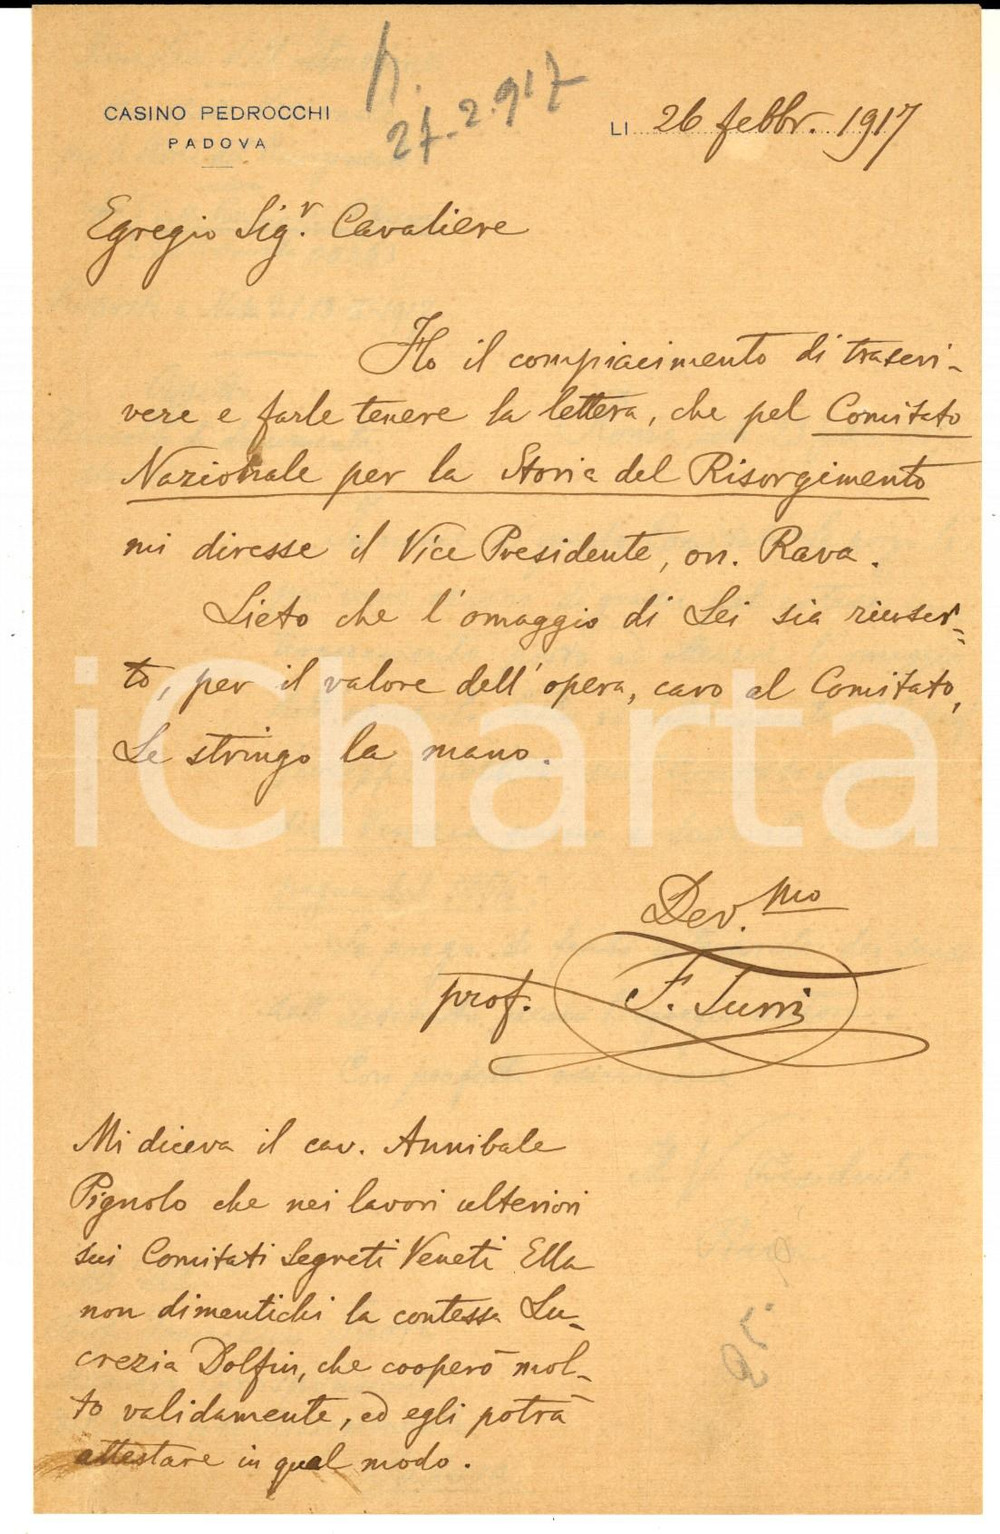 CASINO PEDROCCHI
PADOVA
27.2.917
LI 26 febbr. 1917
Egregio Sig.r Cavaliere
Ho il compiacimento di trascri-
vere e farle tenere la lettera, che pel Comitato
Nazionale per la Storia del Risorgimento
mi diresse il Vice Presidente, on. Rava.
Lieto che l'omaggio di Lei sia riusci=
to, per il valore dell'opera, caro al Comitato,
Le stringo la mano.
Dev.mo
prof. F. Turri
Mi diceva il cav. Annibale
Pignolo che nei lavori ulteriori
sui Comitati Segreti Veneti Ella
non dimentichi la contessa Lu-
crezia Dolfin, che cooperò mol-
to validamente, ed egli potrà
attestare in qual modo.
iCharta